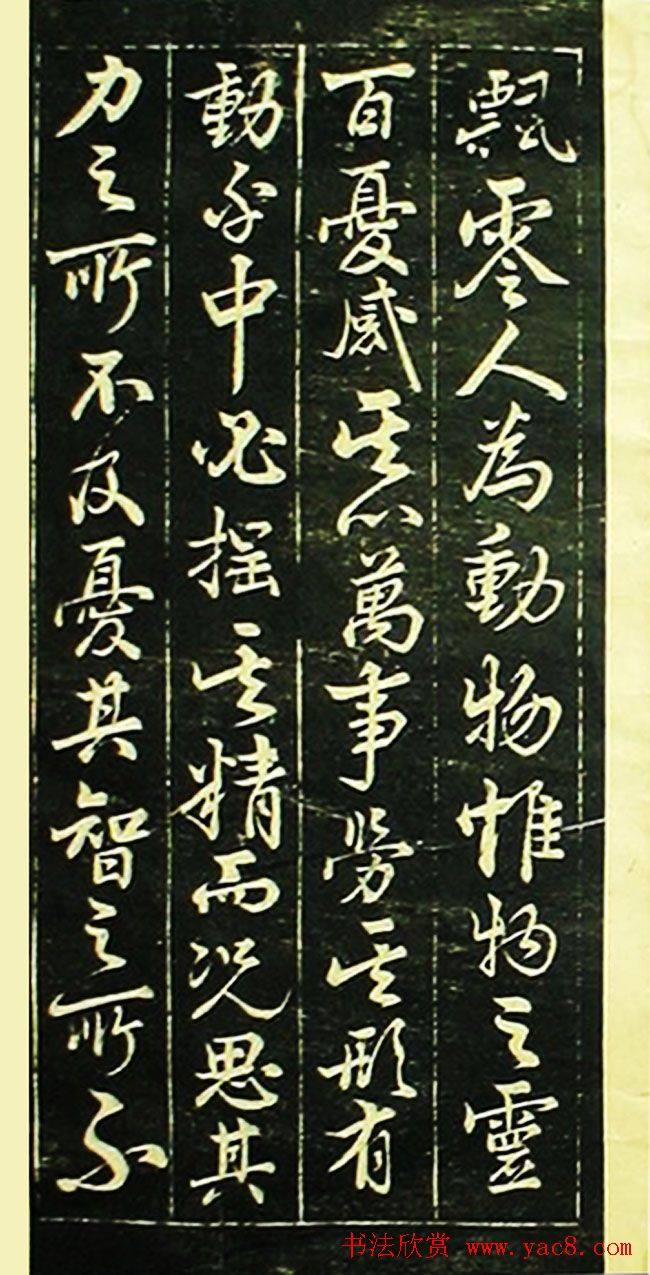 飄零人為動物惟物之靈
百憂感其心萬事勞其形有
動乎中必搖其精而況思其
力之所不及憂其智之所不
书法欣赏 www.yac8.com